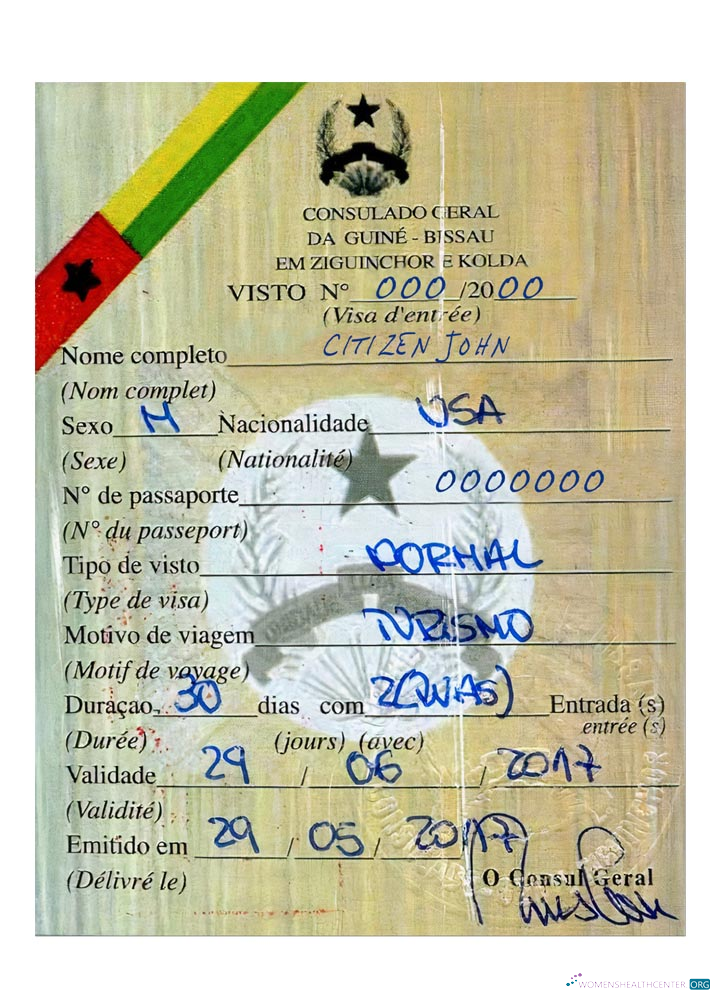 CONSULADO GERAL
DA GUINÉ - BISSAU
EM ZIGUINCHOR E KOLDA
VISTO N° 000 /2000
(Visa d'entrée)
Nome completo CITIZEN JOHN
(Nom complet)
Sexo M Nacionalidade USA
(Sexe) (Nationalité)
N° de passaporte 0000000
(N° du passeport)
Tipo de visto NORMAL
(Type de visa)
Motivo de viagem TURISMO
(Motif de voyage)
Duraçao 30 dias com 2(DUAS) Entrada (s)
(Durée) (jours) (avec) entrée (s)
Validade 29 / 06 / 2017
(Validité)
Emitido em 29 / 05 / 2017
(Délivré le) O Consul Geral
WOMENSHEALTHCENTER.ORG